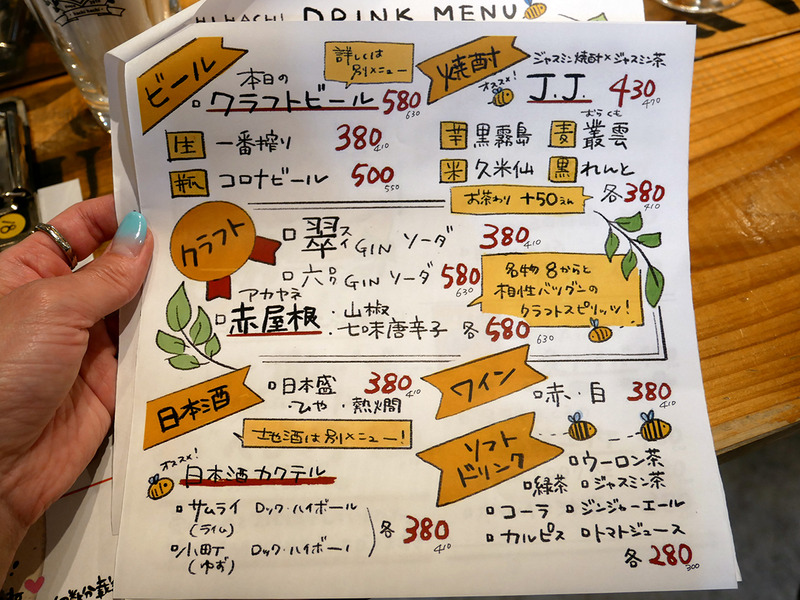 HACHI DRINK MENU
ビール
詳しくは
別メニュー
本日の
クラフトビール 580
630
生 一番搾り 380
410
瓶 コロナビール 500
550
焼酎
ジャスミン焼酎×ジャスミン茶
オススメ!
J.J. 430
470
むらくも
芋 黒霧島 麦 叢雲
米 久米仙 黒 れんと
お茶わり +50えん
各380
410
クラフト
翠 スイ GIN ソーダ 380
410
六 ロク GIN ソーダ 580
630
アカヤネ
赤屋根 ・山椒
・七味唐辛子 各580
630
名物 8からと
相性バツグンの
クラフトスピリッツ!
日本酒
日本盛 380
410
・ひや ・熱燗
地酒は別メニュー!
オススメ!
日本酒カクテル
サムライ ロック・ハイボール
(ライム)
小町 ロック・ハイボール
(ゆず)
各380
410
ワイン
赤・白 380
410
ソフト
ドリンク
ウーロン茶
緑茶 ジャスミン茶
コーラ ジンジャーエール
カルピス トマトジュース
各280
300